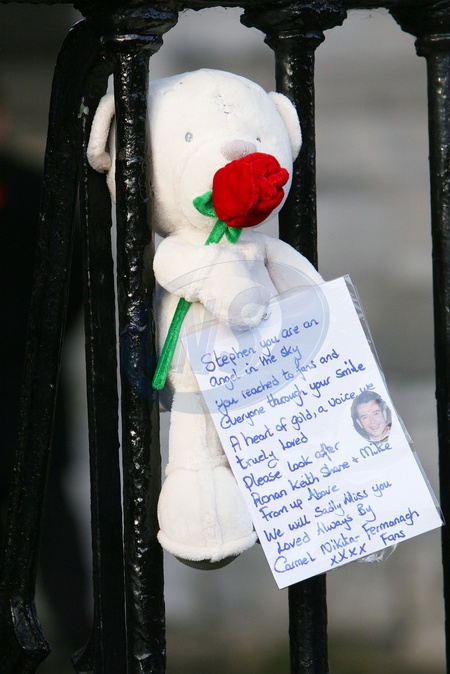 Stephen you are an
angel in the sky
you reached to fans and
Everyone through your smile
A heart of gold, a voice we
truely loved
Please look after
Ronan Keith Shane + Mike
From up Above
We will Sadly Miss you
Loved Always By
Carmel Nikita - Fermanagh
xxxx Fans